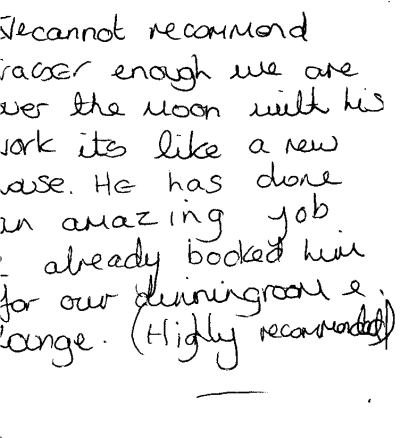 We cannot recommend
enough we are
over the moon with his
work its like a new
house. He has done
an amazing job
already booked him
for our dinningroom &
lounge. (Highly recommended)